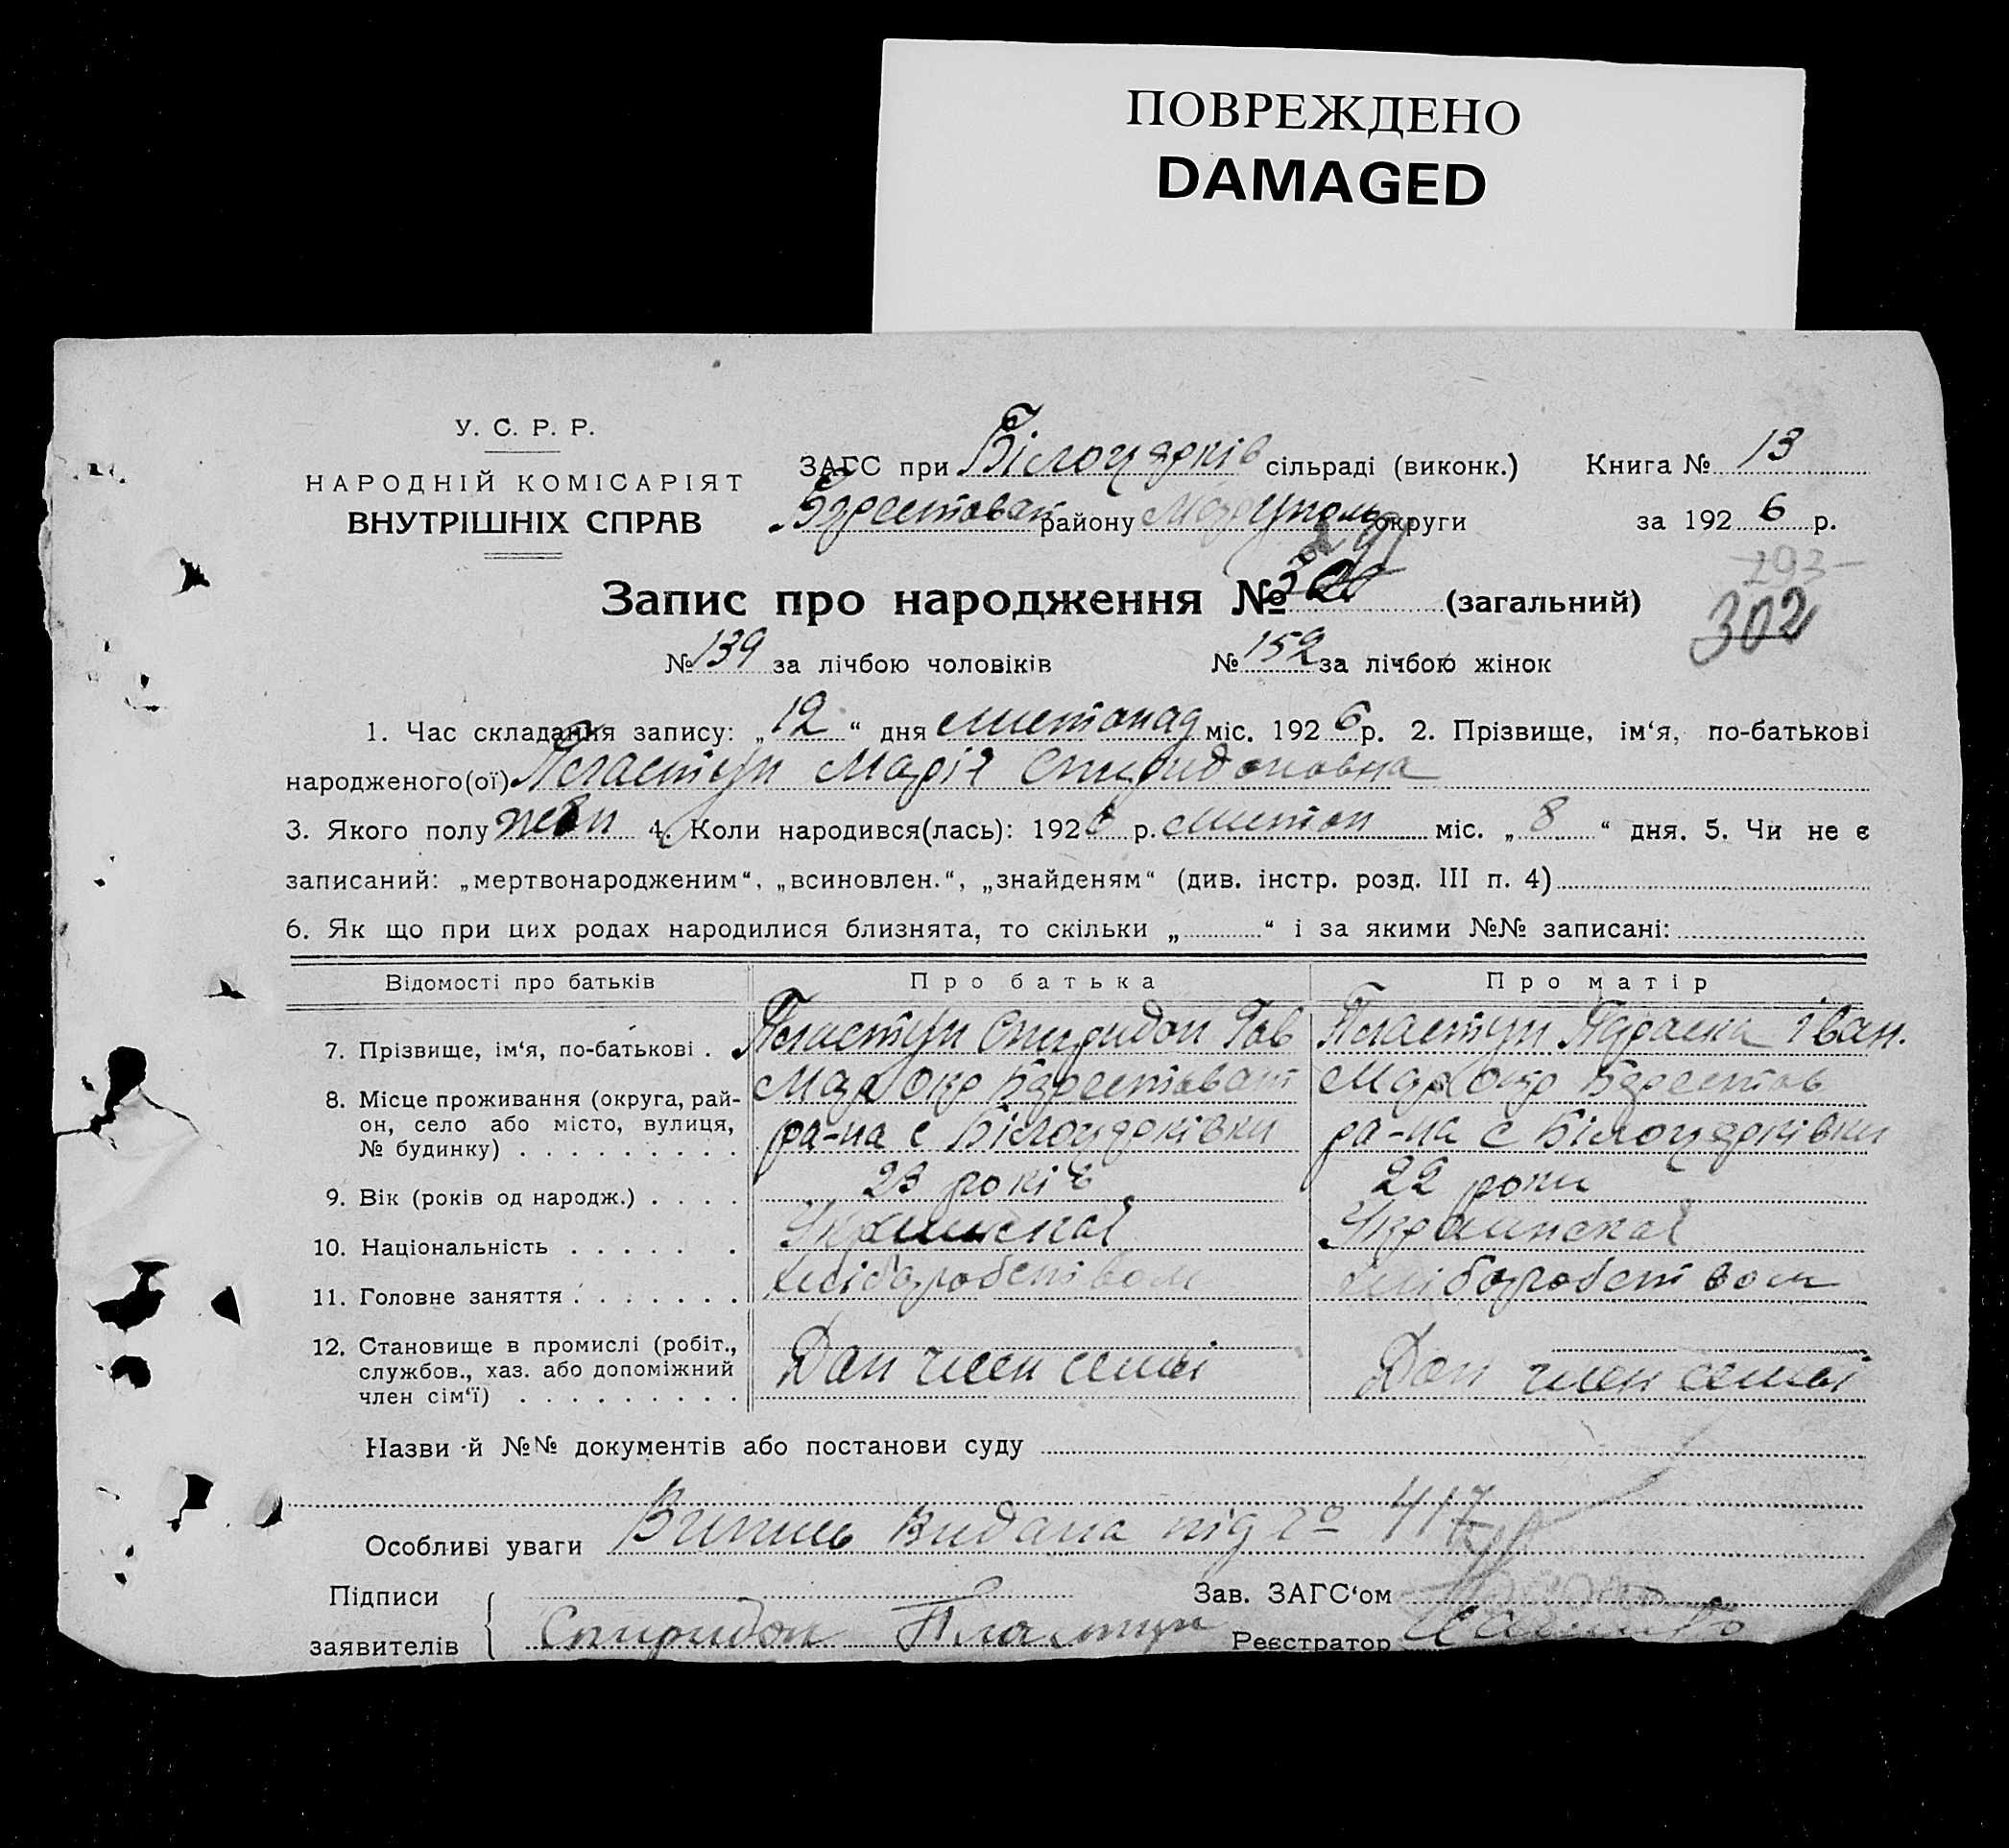 ПОВРЕЖДЕНО
DAMAGED
У. С. Р. Р.
НАРОДНІЙ КОМІСАРІЯТ
ВНУТРІШНІХ СПРАВ
ЗАГС при Білоцерків сільраді (виконк.) Книга № 13
району округи за 192 6 р.
-293-
Запис про народження № (загальний)
302
№ 139 за лічбою чоловіків № 152 за лічбою жінок
1. Час складання запису: „ 12 “ дня листопад міс. 192 6 р. 2. Прізвище, ім‘я, по-батькові
народженого(ої) Пластун Марія Спиридоновна
3. Якого полу жен 4. Коли народився(лась): 192 6 р. листоп міс. „ 8 “ дня. 5. Чи не є
записаний: „мертвонародженим“, „всиновлен.“, „знайденям“ (див. інстр. розд. III п. 4)
6. Як що при цих родах народилися близнята, то скільки „ “ і за якими №№ записані:
Відомості про батьків Про батька Про матір
7. Прізвище, ім‘я, по-батькові . Пластун Спиридон Пластун Параска Іван.
8. Місце проживання (округа, рай-
он, село або місто, вулиця,
№ будинку) . . . . . . . . .
Мар окр
ра-на с Білоцерківки
Мар окр
ра-на с Білоцерківки
9. Вік (років од народж.) . . . . 23 років 22 роки
10. Національність . . . . . . Украинская Украинская
11. Головне заняття . . . . . . . хліборобством хліборобством
12. Становище в промислі (робіт.,
службов., хаз. або допоміжний
член сім‘ї) . . . . . . . . .
Доп член семьі
Доп член семьі
Назви й №№ документів або постанови суду
Особливі уваги Випись видана під № 417
Підписи
заявителів
Спиридон Пластун
Зав. ЗАГС‘ом
Реєстратор